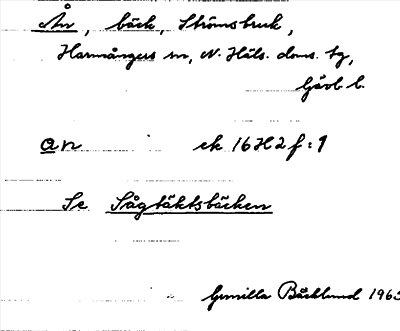 Ån, bäck, Strömsbruk,
Harmångers sn, N. Häls. doms. tg,
Gävl. l.
an ek 16H2f:9
Se Sågtäktsbäcken
Gunilla Bäcklund 1963